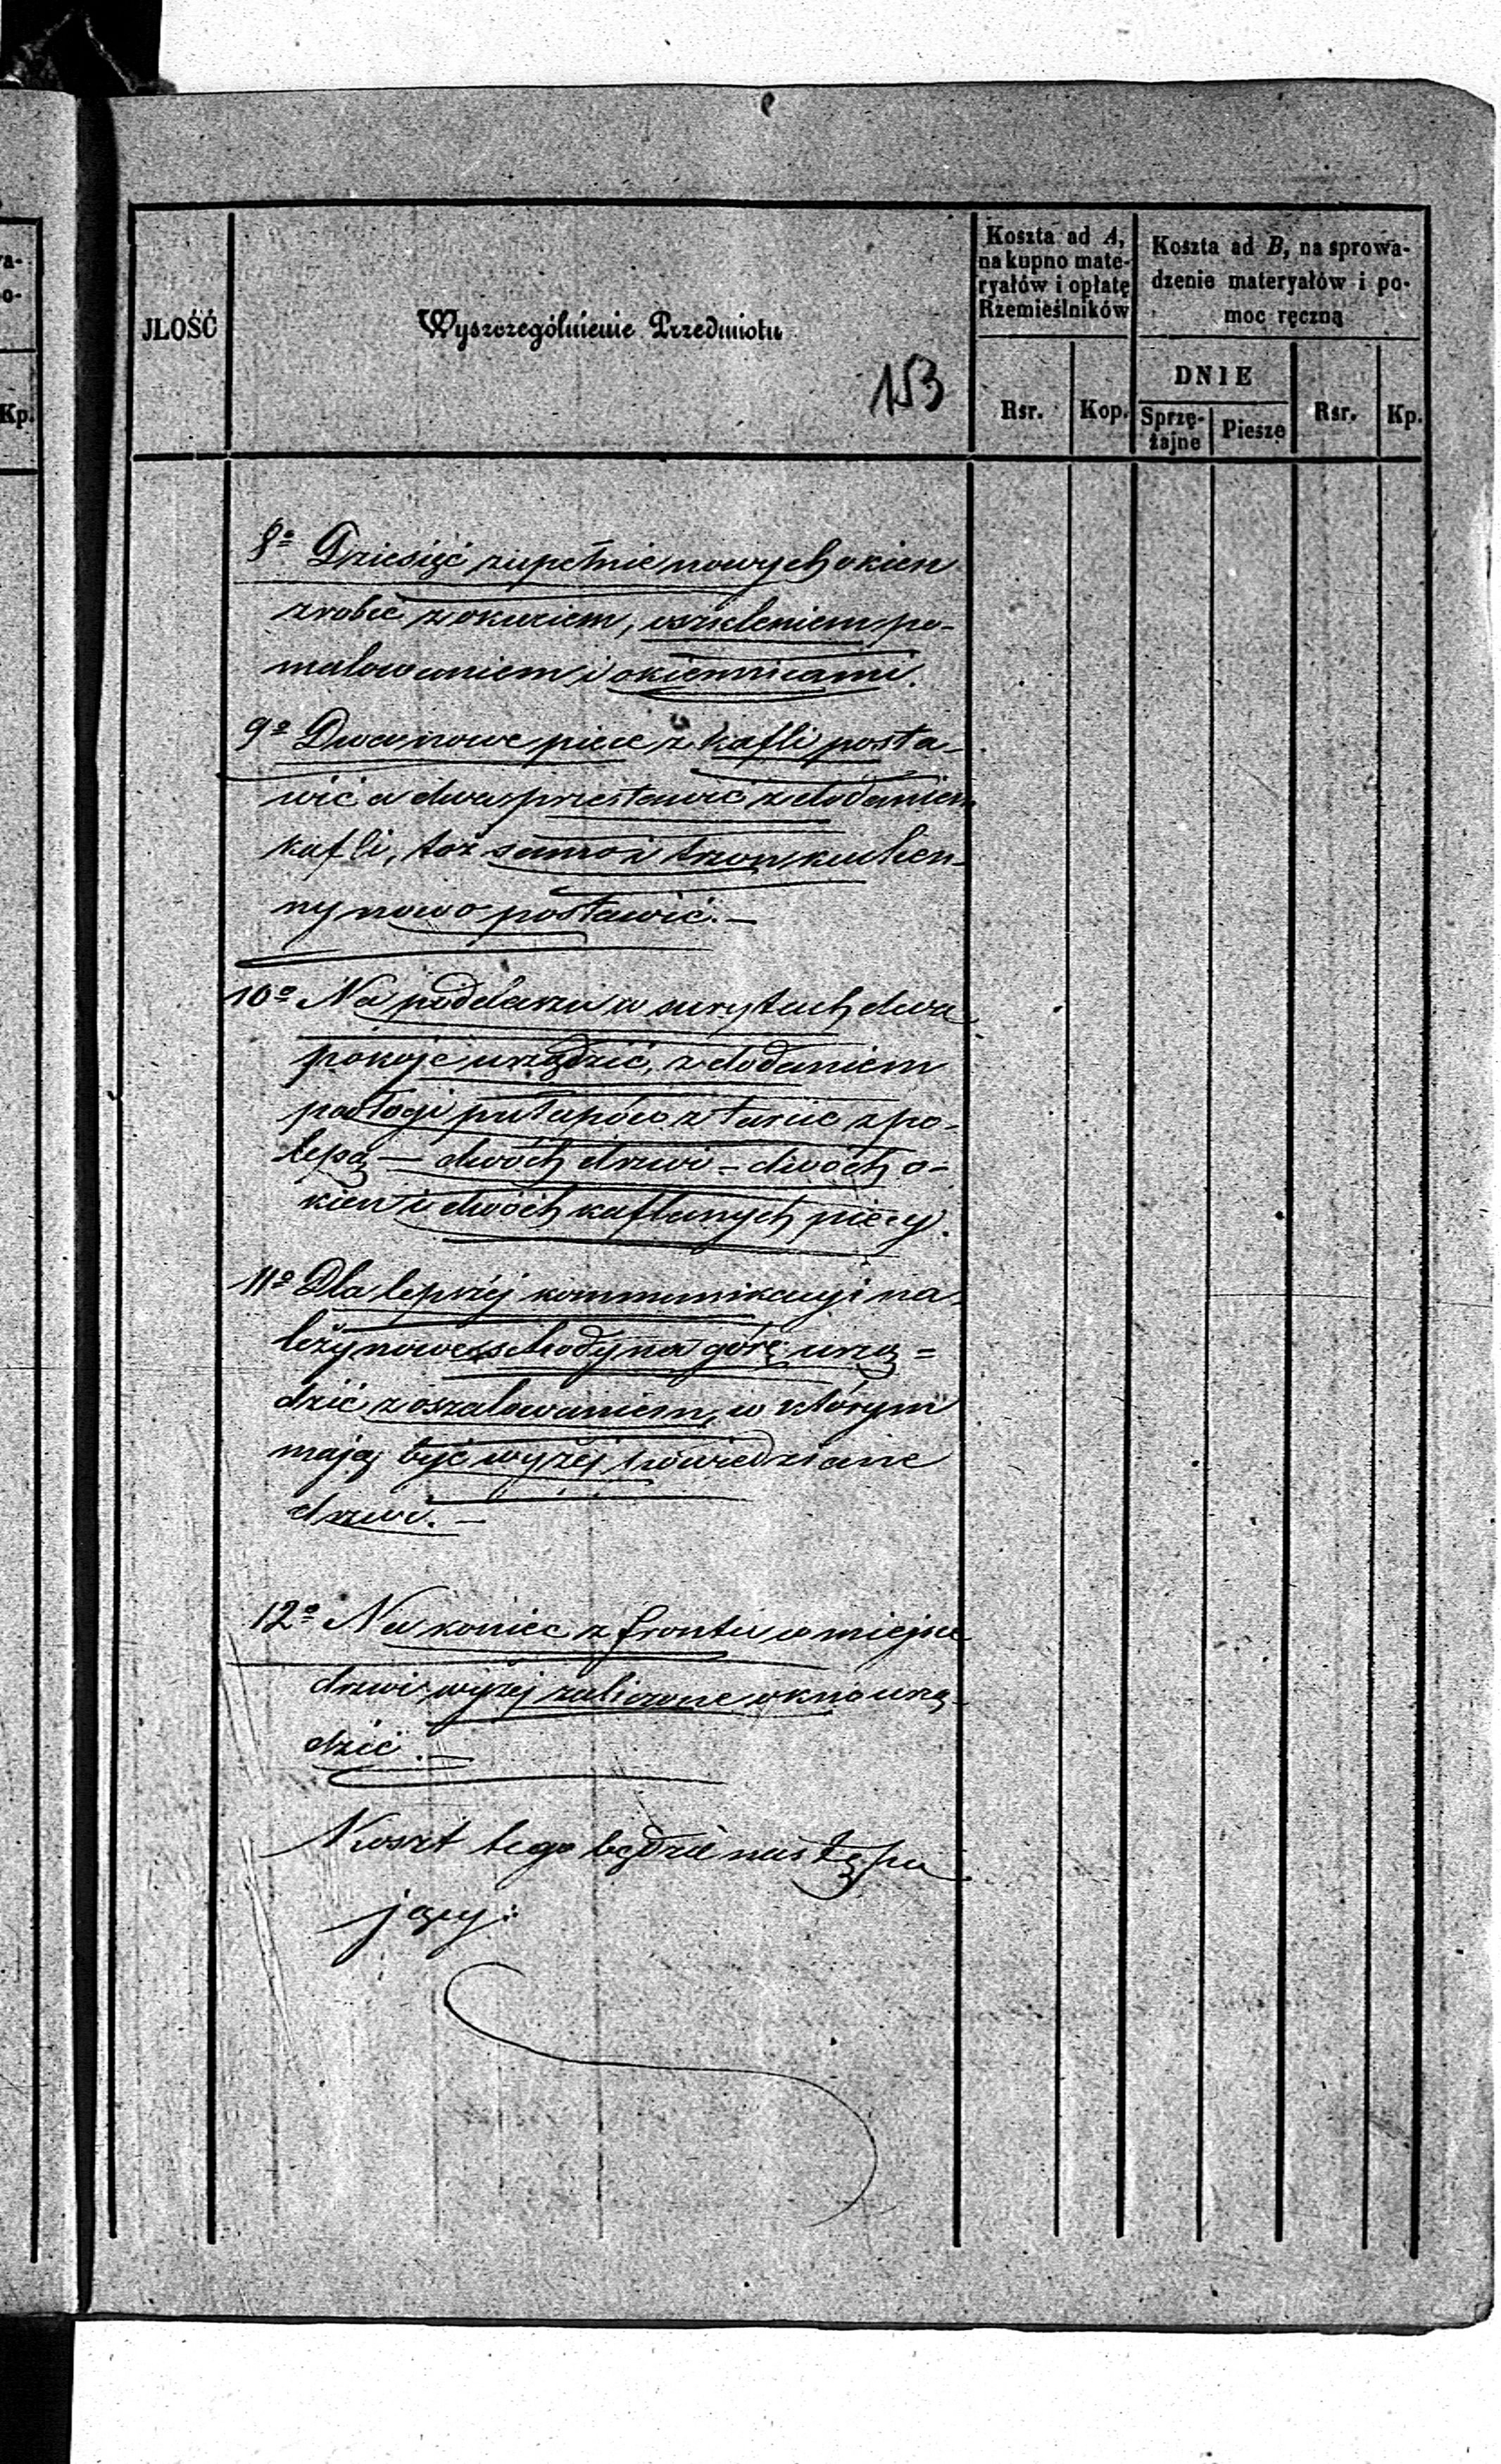 a-
o-
Kp.
JLOŚĆ
Wyszczególnienie Przedmiotu
153
Koszta ad A,
na kupno mate-
ryałów i opłatę
Rzemieślników
Koszta ad B, na sprowa-
dzenie materyałów i po-
moc ręczną
DNIE
Rsr.
Kop.
Sprzę-
żajne
Piesze
Rsr.
Kp.
8o Dziesięć zupełnie nowych okien
zrobić z okuciem, oszkleniem po-
malowaniem i okiennicami.
9o Dwa nowe piece z kafli posta-
wić a dwa przestawić z dodaniem
kafli, toż samo i trzon kuchen-
ny nowo postawić. —
10o Na poddaszu w szczytach dwa
pokoje urządzić, z dodaniem
podłogi pułapów z tarcic z po-
lepą — dwóch drzwi - dwóch o-
kien i dwóch kaflanych piecy.
11o Dla lepszéj kommunikacyi na-
leży nowe schody na górę urzą=
dzić z oszalowaniem, w którym
mają być wyżej powiedziane
drzwi. —
12o Na koniec z frontu w miejsce
drzwi wyżej zaliczone okno urzą-
dzić. —
Koszt tego będzie nastąpu
jący: